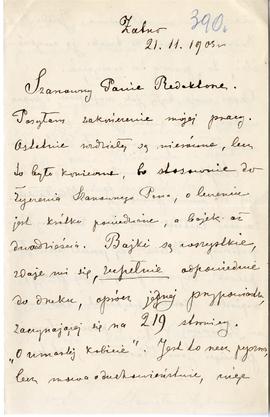 390.
21. 11. 1903 r
Szanowny Panie Redaktorze.
Posyłam zakończenie mojej pracy.
Ostatnie rozdziały są nierówne, lecz
to było konieczne, bo stosownie do
życzenia Szanownego Pana, o lecznictwie
jest krótko powiedziane, a bajek aż
dwadzieścia. Bajki są wszystkie,
zdaje mi się, zupełnie odpowiednie
do druku, oprócz jednej przypowiastki,
zaczynającej się na 219 stronicy.
"O umarłej kobiecie". Jest to rzecz
lecz mowa o duchowieństwie, więc